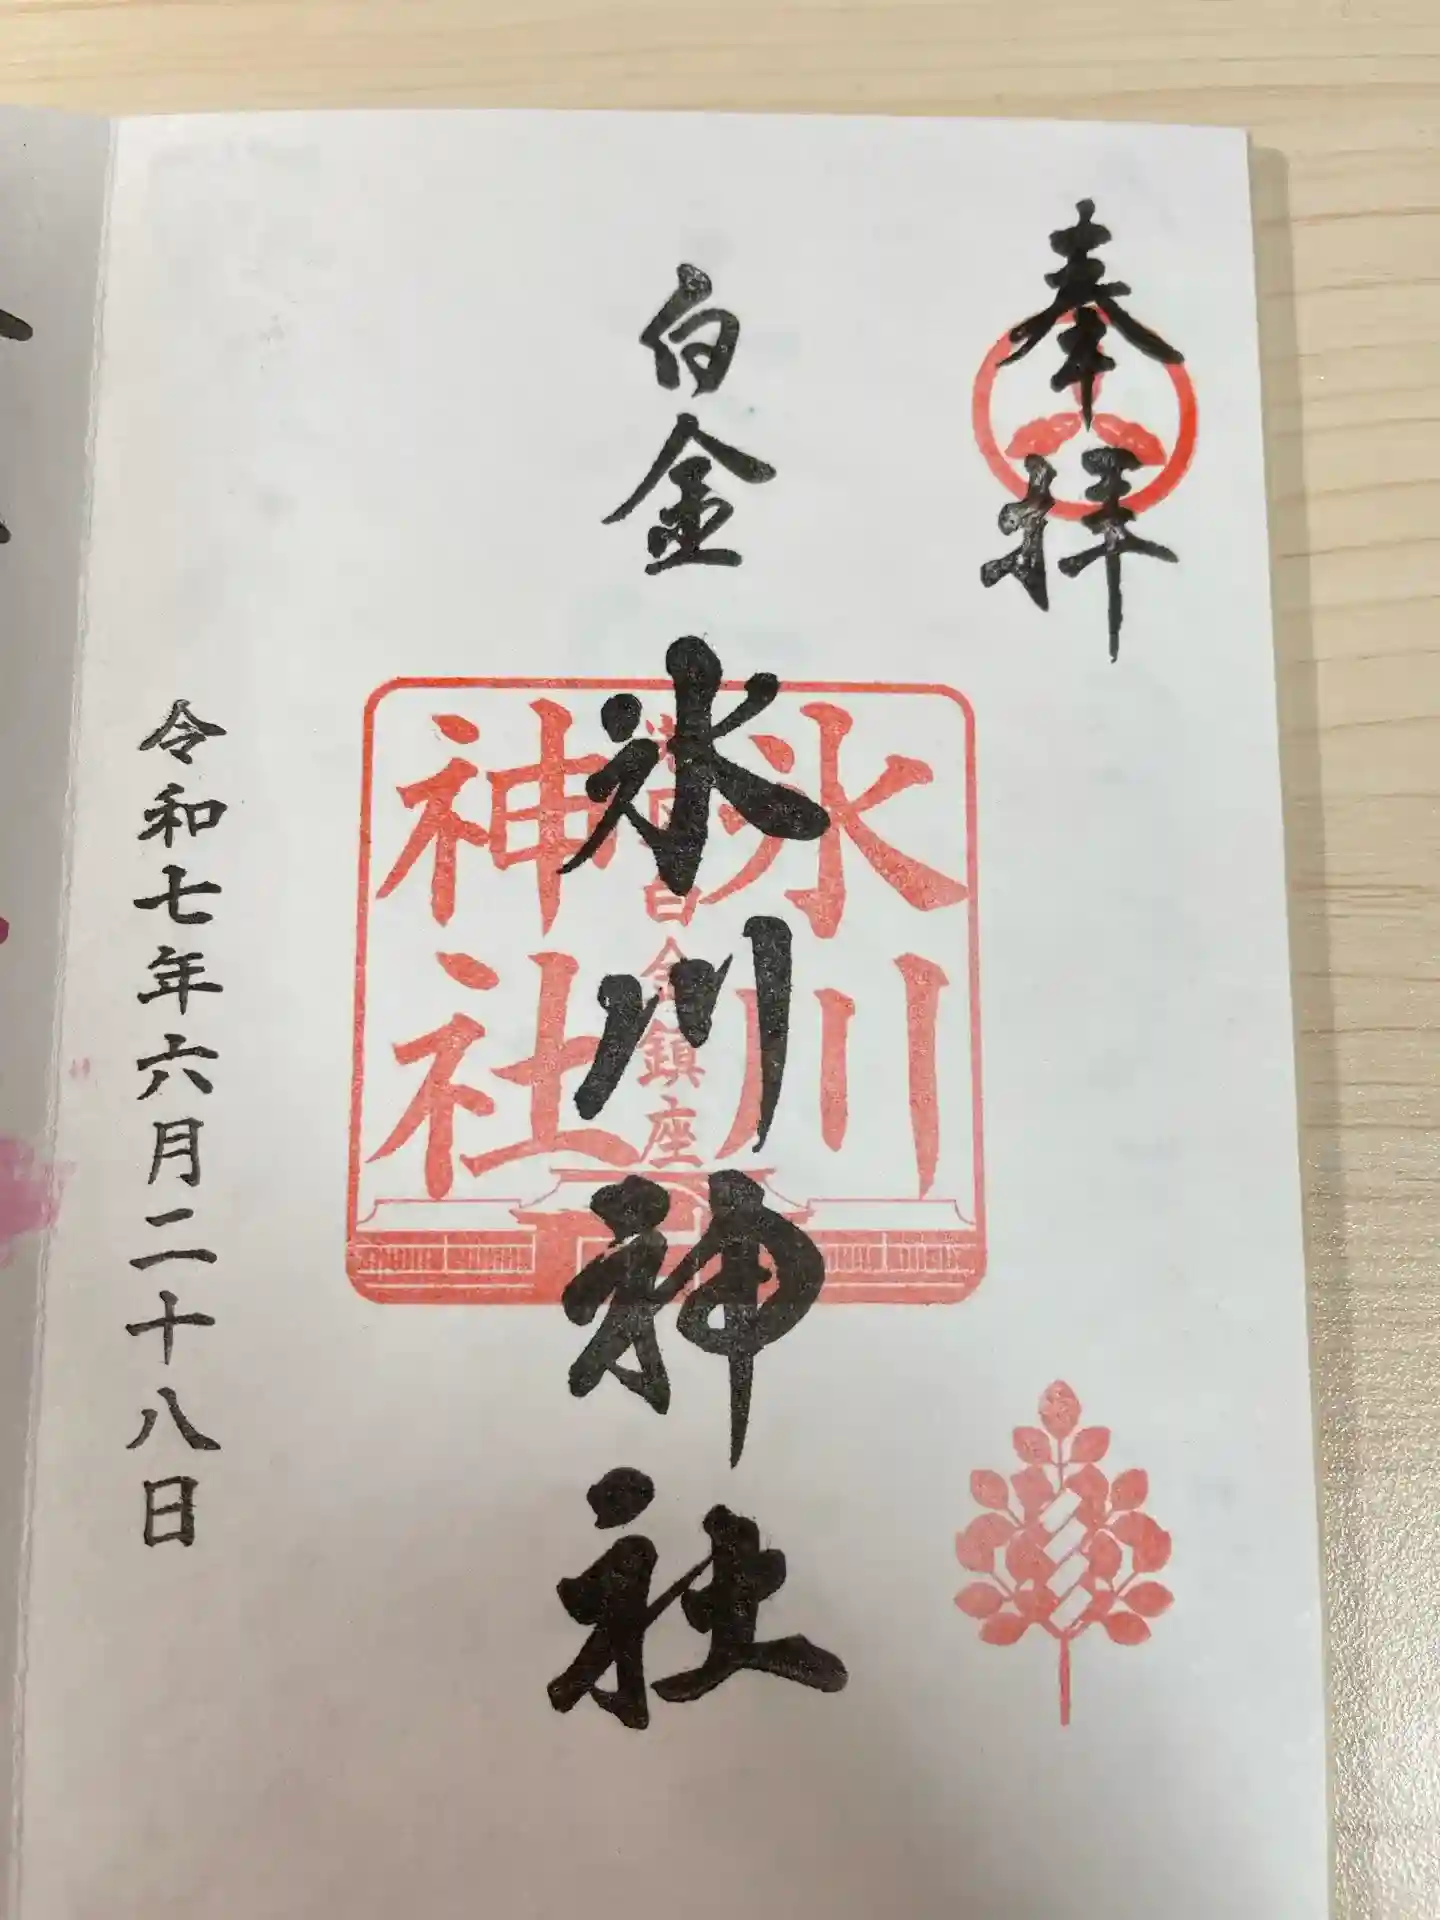 奉拝
白金 氷川神社
氷川
白金鎮座
神社
令和七年六月二十八日